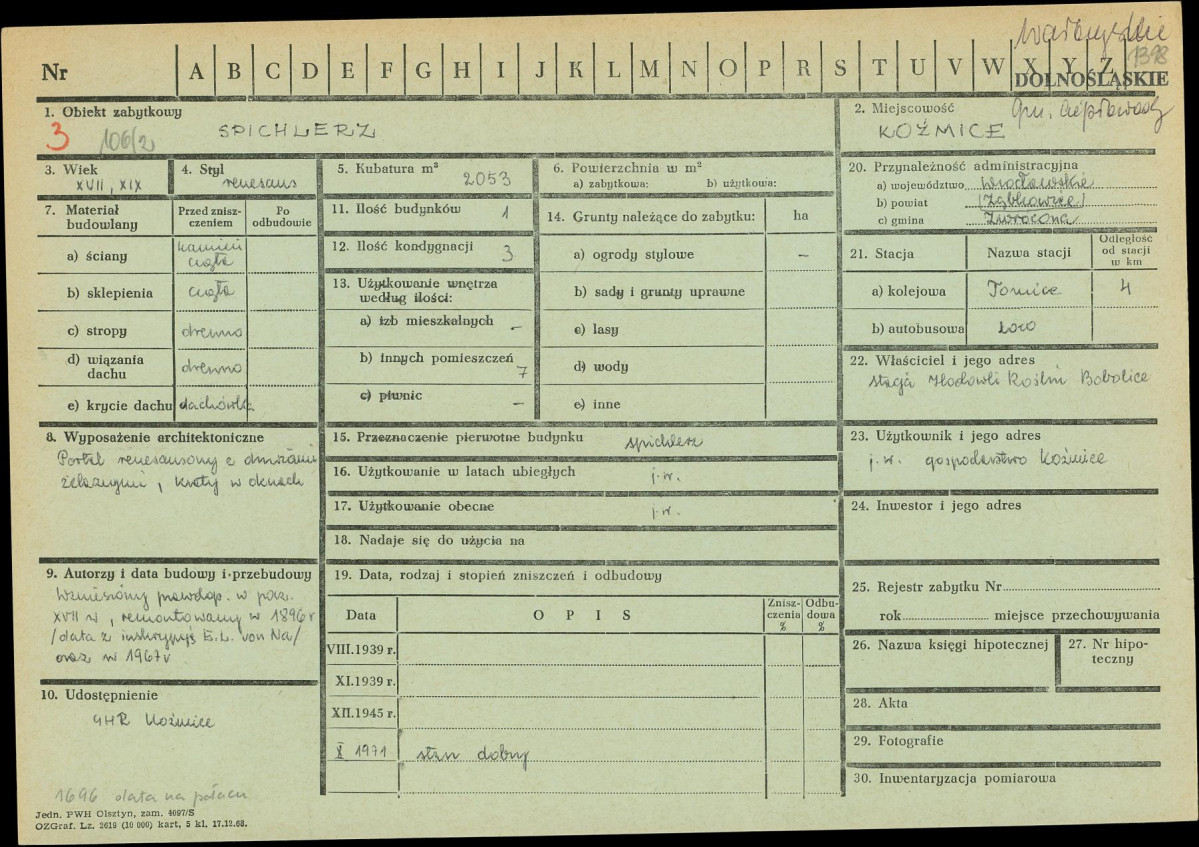 Wałbrzyskie
1398
Nr
A B C D E F G H I J K L M N O P R S T U V W X Y Z
DOLNOŚLĄSKIE
1. Obiekt zabytkowy
3 106/2 SPICHLERZ
2. Miejscowość gm. Ciepłowody
KOŹMICE
3. Wiek
XVII, XIX
4. Styl
renesans
5. Kubatura m³
2053
6. Powierzchnia w m²
a) zabytkowa: b) użytkowa:
7. Materiał budowlany
Przed zniszczeniem
Po odbudowie
a) ściany kamień cegła
b) sklepienia cegła
c) stropy drewno
d) wiązania dachu drewno
e) krycie dachu dachówka
8. Wyposażenie architektoniczne
Portal renesansowy z drzwiami
żelaznymi, kraty w oknach
9. Autorzy i data budowy i przebudowy
Wzniesiony prawdop. w pocz.
XVII w, remontowany w 1896 r
/data z inskrypcji E.L. von Na/
oraz w 1967 r
10. Udostępnienie
GHR Koźmice
1696 data na pałacu
Jedn. PWH Olsztyn, zam. 4097/S
OZGraf. Lz. 2619 (10 000) kart, 5 kl. 17.12.68.
11. Ilość budynków 1
12. Ilość kondygnacji 3
13. Użytkowanie wnętrza
według ilości:
a) izb mieszkalnych –
b) innych pomieszczeń 7
c) piwnic –
14. Grunty należące do zabytku: ha
a) ogrody stylowe –
b) sady i grunty uprawne
c) lasy
d) wody
e) inne
15. Przeznaczenie pierwotne budynku spichlerz
16. Użytkowanie w latach ubiegłych j.w.
17. Użytkowanie obecne j.w.
18. Nadaje się do użycia na
19. Data, rodzaj i stopień zniszczeń i odbudowy
Data
O P I S
Zniszczenia %
Odbudowa %
VIII.1939 r.
XI.1939 r.
XII.1945 r.
X 1971 stan dobry
20. Przynależność administracyjna
a) województwo Wrocławskie
b) powiat (Ząbkowice)
c) gmina Zwrócona
21. Stacja
Nazwa stacji
Odległość od stacji w km
a) kolejowa Tomice 4
b) autobusowa loco
22. Właściciel i jego adres
Stacja Hodowli Roślin Bobolice
23. Użytkownik i jego adres
j.w. gospodarstwo Koźmice
24. Inwestor i jego adres
25. Rejestr zabytku Nr
rok miejsce przechowywania
26. Nazwa księgi hipotecznej
27. Nr hipoteczny
28. Akta
29. Fotografie
30. Inwentaryzacja pomiarowa